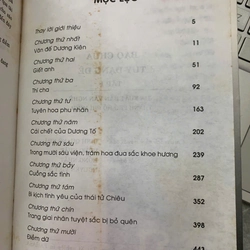 MỤC LỤC
Thay lời giới thiệu 5
Chương thứ nhất
Vân đế Dương Kiên 11
Chương thứ hai
Giết anh 51
Chương thứ ba
Thí cha 92
Chương thứ tư
Tuyên hoa phu nhân 163
Chương thứ năm
Cái chết của Dương Tố 202
Chương thứ sáu
Trang mười sáu viện, trăm hoa đua sắc khoe hương 239
Chương thứ bảy
Cuồng sắc tình 287
Chương thứ tám
Bi kịch tình yêu của thái tử Chiêu 352
Chương thứ chín
Trang giai nhân tuyệt sắc bị bỏ quên 398
Chương thứ mười
Diễm dữ